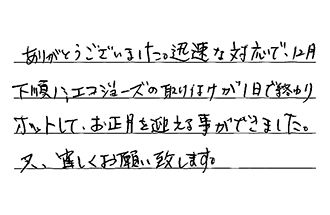 ありがとうございました。迅速な対応で、12月
下順に、エコジョーズの取り付けが1日で終わり
ホットして、お正月を迎える事ができました。
又、宜しくお願い致します。